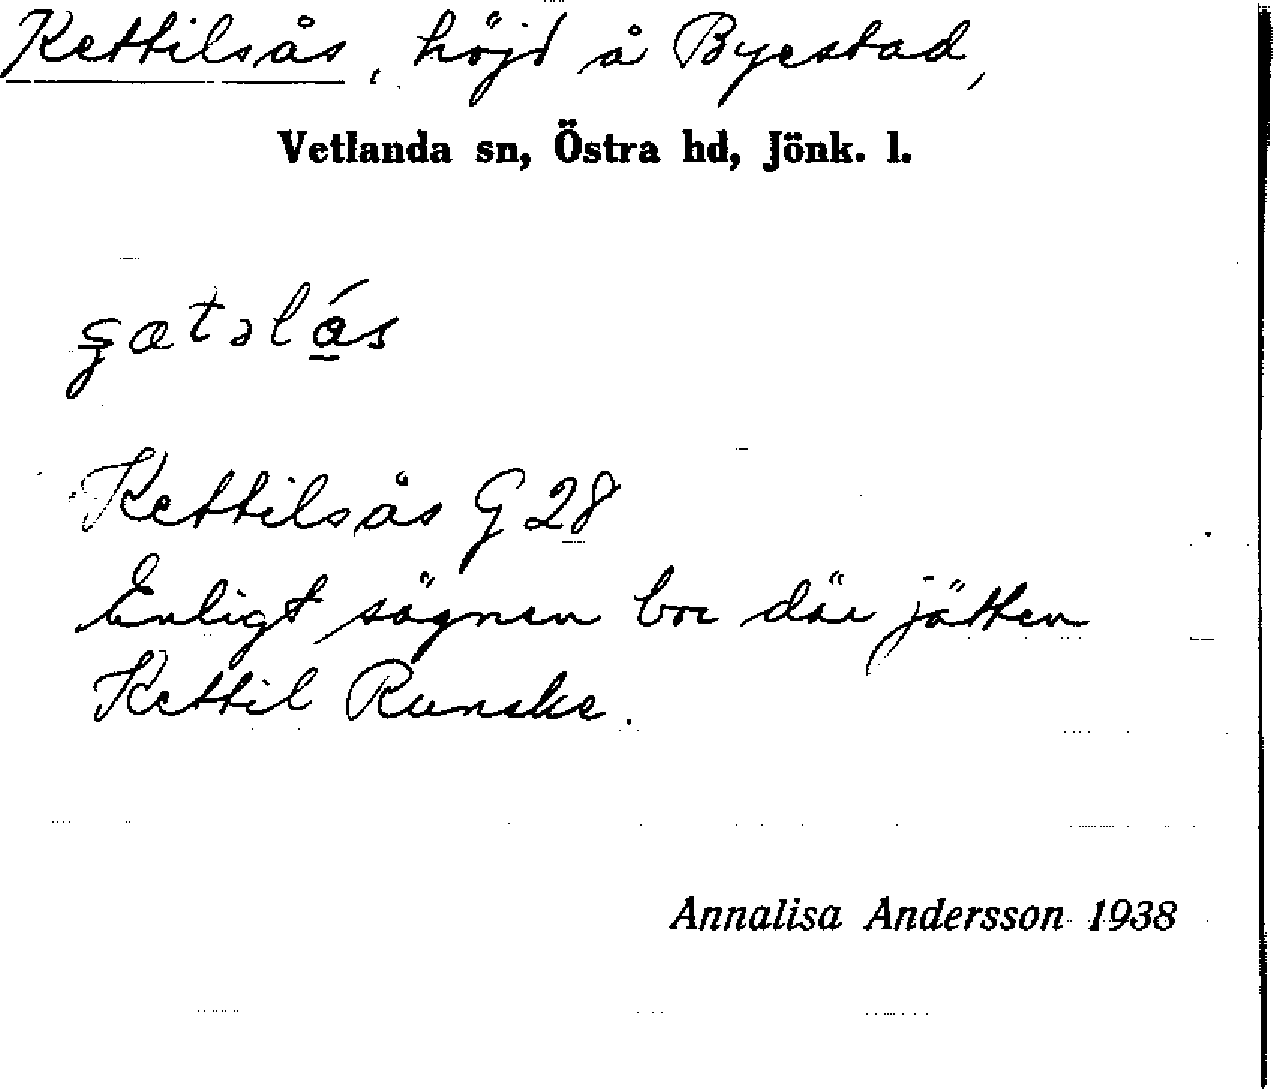 Kettilsås, höjd å Byestad,
Vetlanda sn, Östra hd, Jönk. l.
Kettilsås G 28
Enligt sägnen bor där jätten
Kettil Runske.
Annalisa Andersson 1938